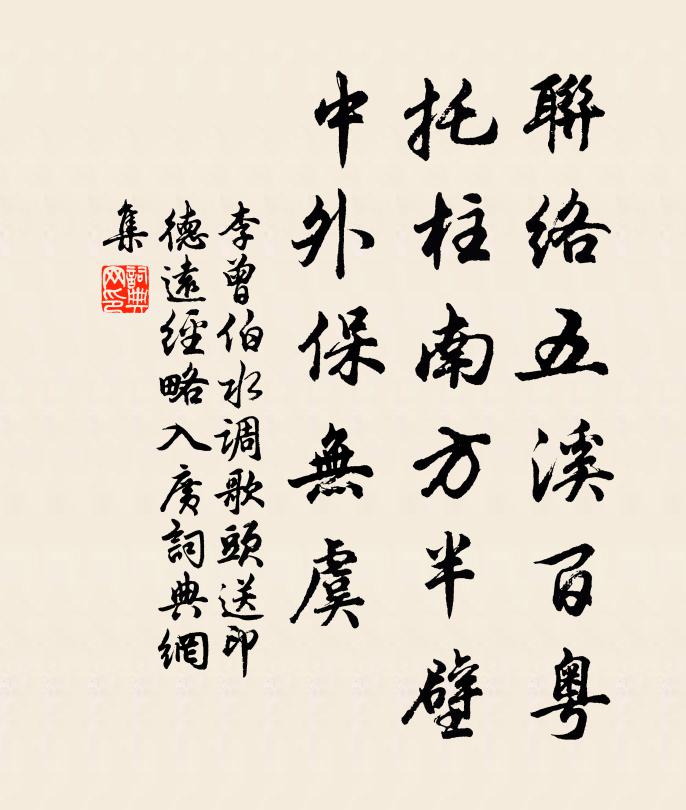 聯絡五溪百粵
托柱南方半壁
中外保無虞
李曾伯水調歌頭送印
德遠經略入廣詞典網
集
詞典網印